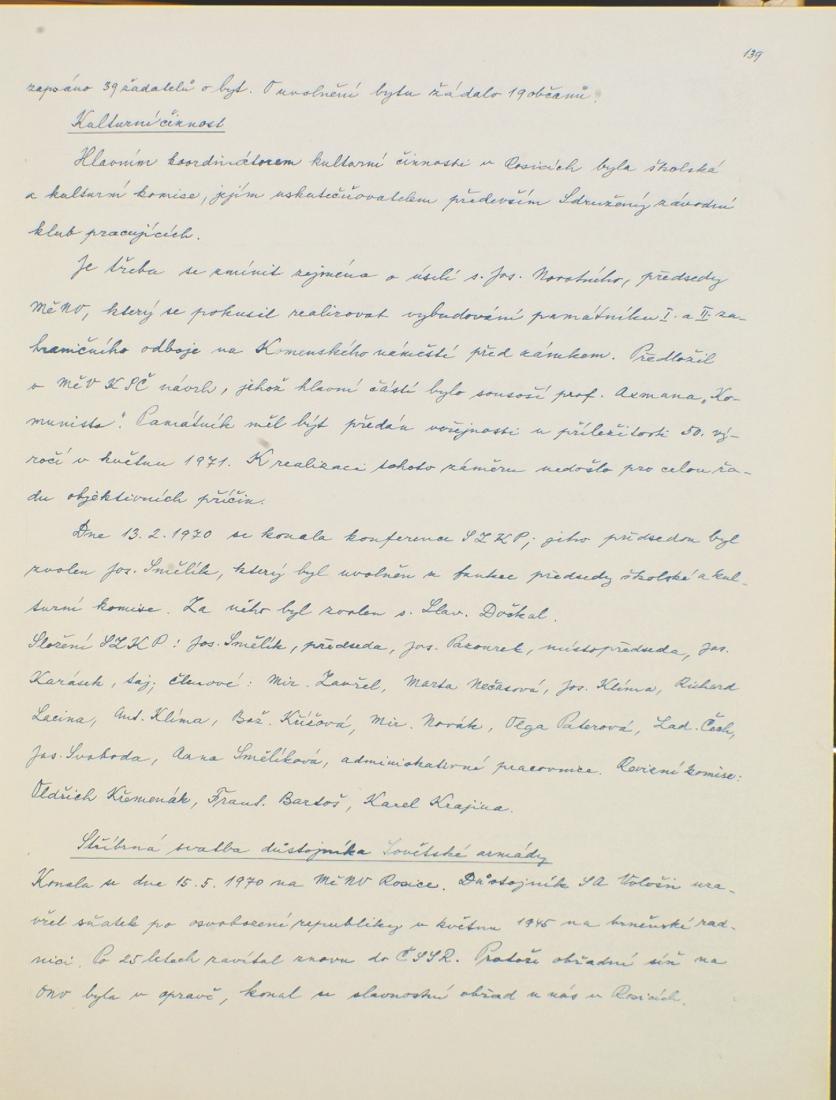 139
zapsáno 39 žadatelů o byt. O uvolnění bytu žádalo 19 občanů.
Kulturní činnost
Hlavním koordinátorem kulturní činnosti v Rosicích byla školská
a kulturní komise, jejím uskutečňovatelem především Sdružený závodní
klub pracujících.
Je třeba se zmínit zejména o úsilí s. Jos. Novotného, předsedy
MěNV, který se pokusil realizovat vybudování památníku I. a II. za-
hraničního odboje na Komenského náměstí před zámkem. Předložil
v MěV KSČ návrh, jehož hlavní částí bylo sousoší prof. Axmana „Ko-
munista“. Památník měl být předán veřejnosti u příležitosti 50. vý-
ročí v květnu 1971. K realizaci tohoto záměru nedošlo pro celou řa-
du objektivních příčin.
Dne 13. 2. 1970 se konala konference SZKP; jeho předsedou byl
zvolen Jos. Smělík, který byl uvolněn z funkce předsedy školské a kul-
turní komise. Za něho byl zvolen s. Slav. Dočkal.
Složení SZKP: Jos. Smělík, předseda, Jos. Pazourek, místopředseda, Jos.
Karásek, taj; členové: Mir. Zavřel, Marta Nečasová, Jos. Klíma, Richard
Lacina, Ant. Klíma, Bož. Křížová, Mir. Novák, Olga Paterová, Lad. Čech,
Jos. Svoboda, Anna Smělíková, administrativní pracovnice. Revizní komise:
Oldřich Křemenák, Frant. Bartoš, Karel Krajina.
Stříbrná svatba důstojníka Sovětské armády
Konala se dne 15. 5. 1970 na MěNV Rosice. Důstojník SA Vološin uza-
vřel sňatek po osvobození republiky v květnu 1945 na brněnské rad-
nici. Po 25 letech zavítal znovu do ČSSR. Protože obřadní síň na
ONV byla v opravě, konal se slavnostní obřad u nás v Rosicích.